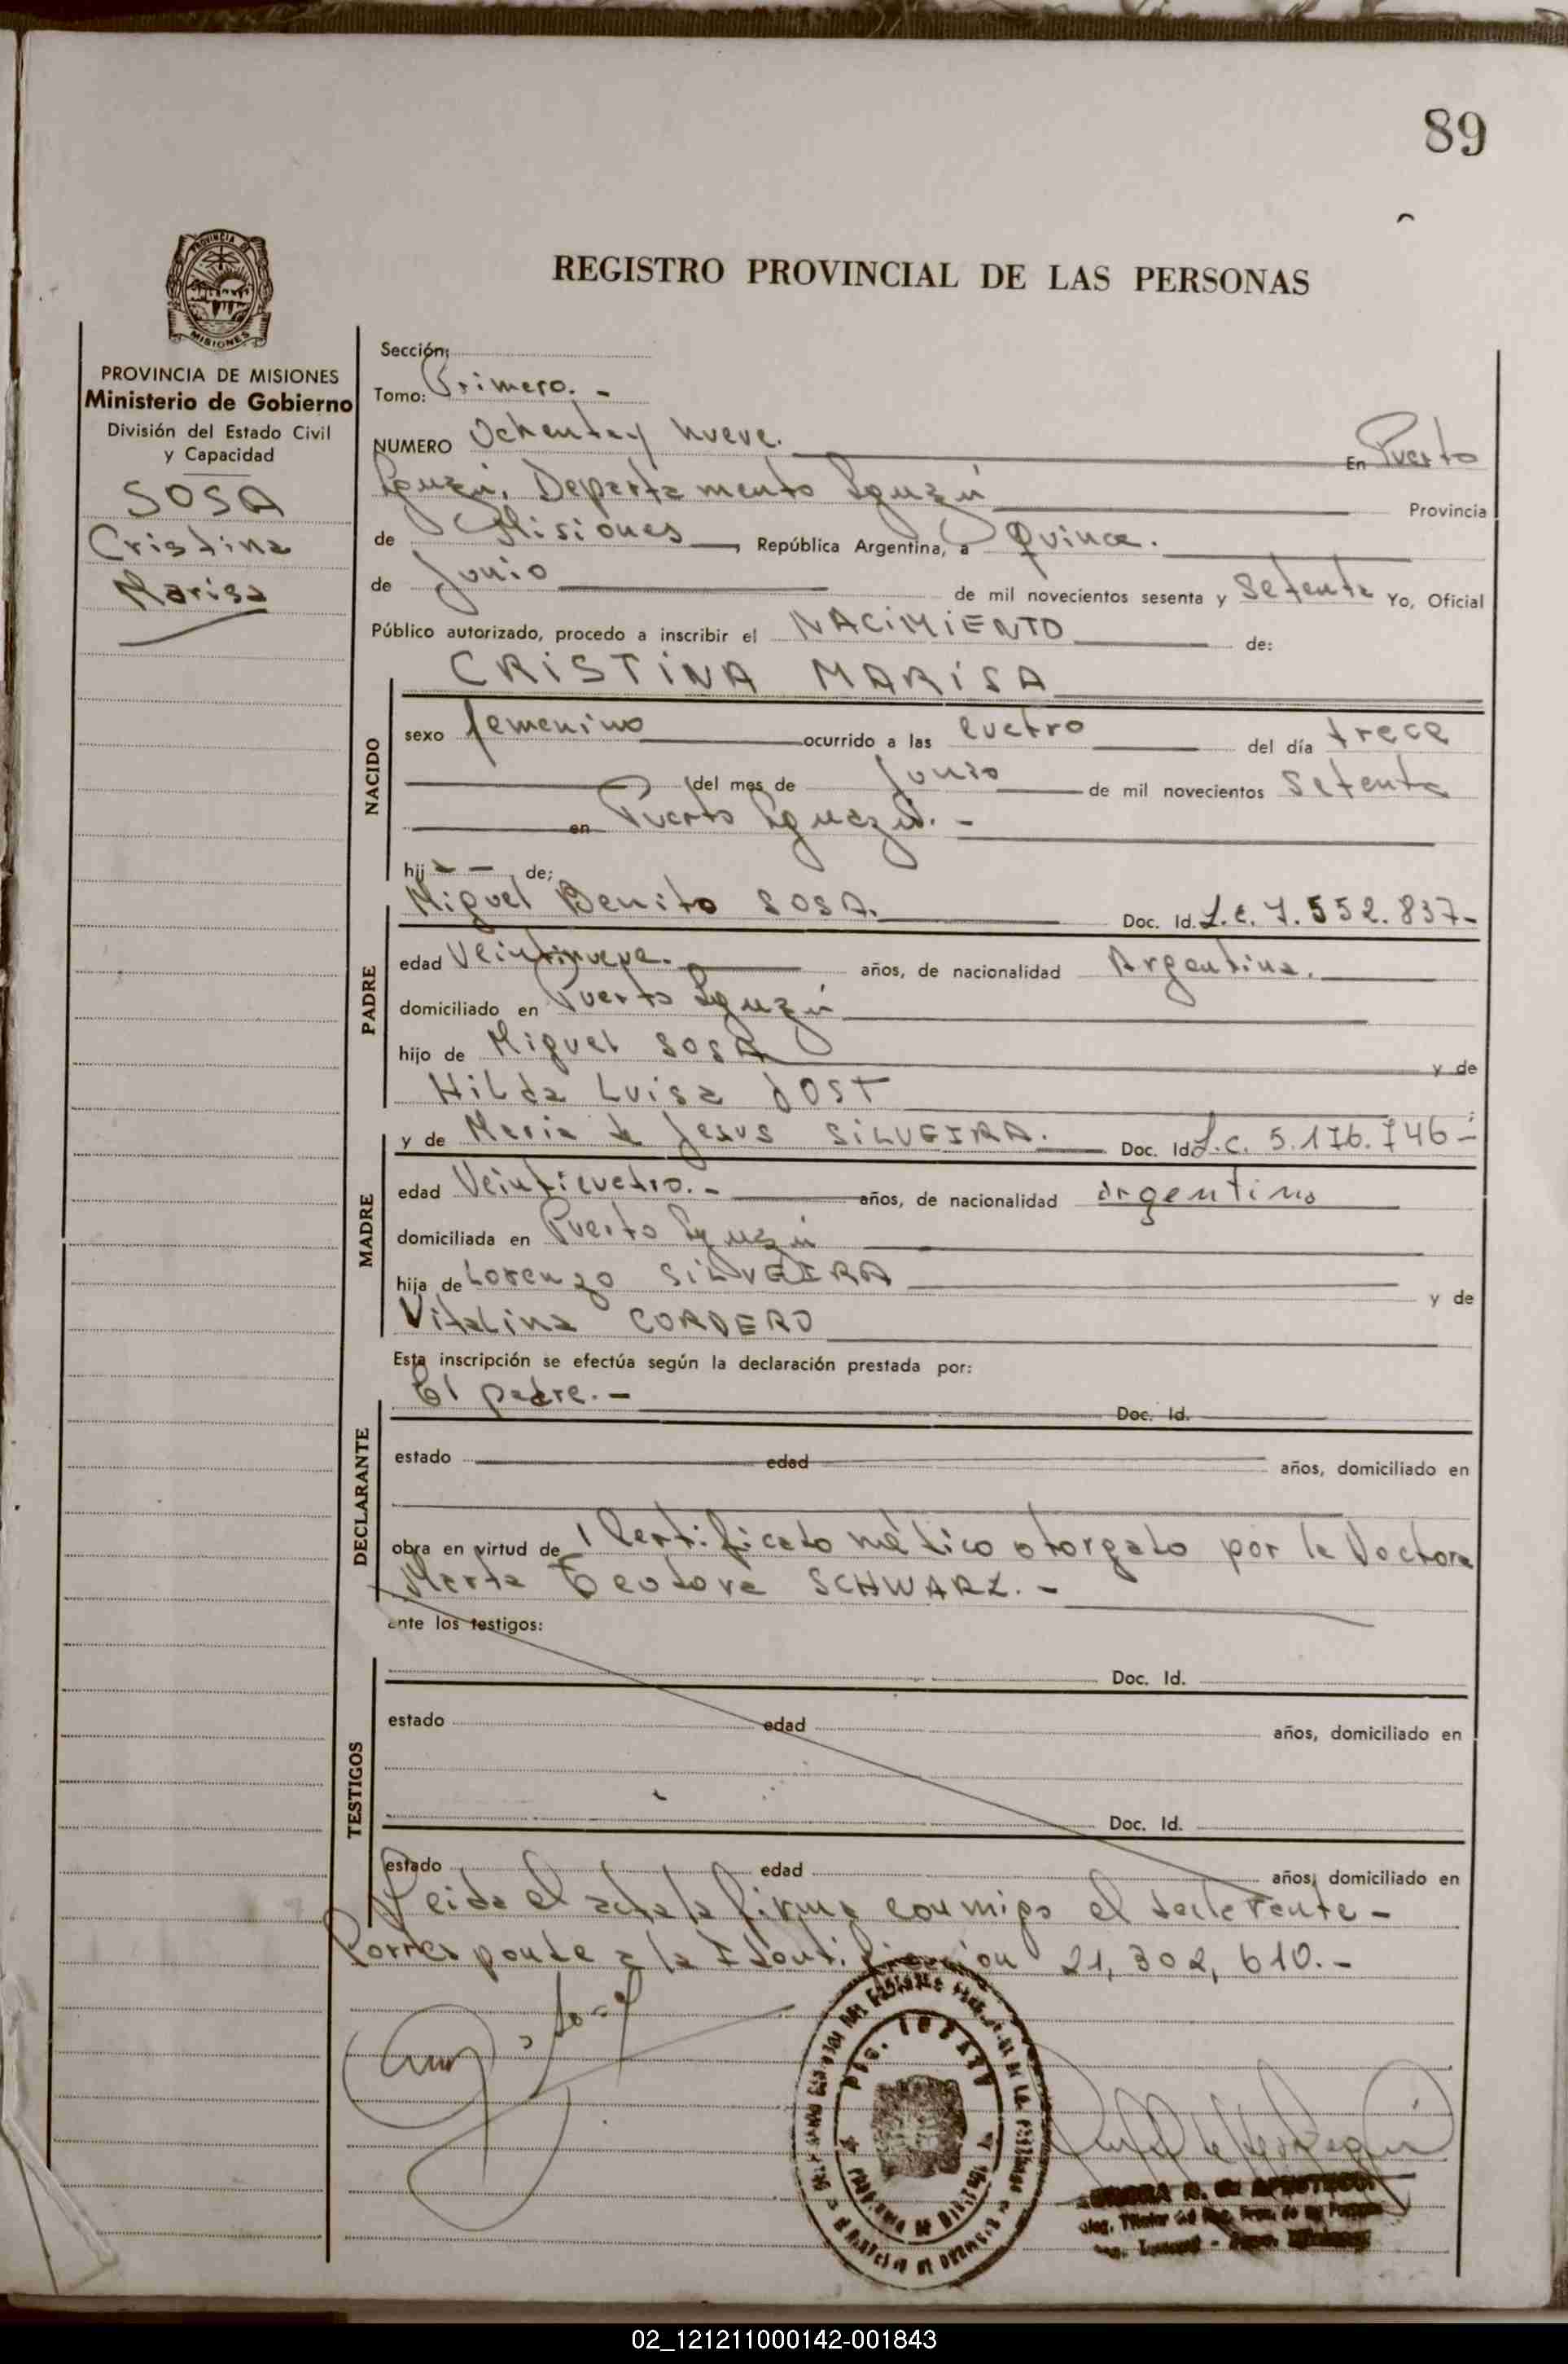 89
PROVINCIA DE
MISIONES
REGISTRO PROVINCIAL DE LAS PERSONAS
PROVINCIA DE MISIONES
Ministerio de Gobierno
División del Estado Civil
y Capacidad
SOSA
Cristina
Marisa
Sección:
Tomo: Primero. -
NUMERO Ochenta y nueve. En Puerto
Iguazú, Departamento Iguazú Provincia
de Misiones, República Argentina, a Quince.
de Junio de mil novecientos sesenta y Setenta Yo, Oficial
Público autorizado, procedo a inscribir el NACIMIENTO de:
CRISTINA MARISA
NACIDO
sexo femenino ocurrido a las cuatro del día trece
del mes de Junio de mil novecientos Setenta
en Puerto Iguazú. -
hij - - de:
PADRE
Miguel Benito SOSA. Doc. Id. L.E. 7.552.837-
edad Veintinueve. años, de nacionalidad Argentina.
domiciliado en Puerto Iguazú
hijo de Miguel SOSA y de
Hilda Luisa JOST
MADRE
y de Maria de Jesus SILVEIRA. Doc. Id. L.C. 5.176.746-
edad Veinticuatro. - años, de nacionalidad argentina
domiciliada en Puerto Iguazú
hija de Lorenzo SILVEIRA y de
Vitalina CORDERO
Esta inscripción se efectúa según la declaración prestada por:
DECLARANTE
El padre. - Doc. Id.
estado edad años, domiciliado en
obra en virtud de 1 Certificado médico otorgado por la Doctora
Marta Teodora SCHWARZ. -
ante los testigos:
TESTIGOS
Doc. Id.
estado edad años, domiciliado en
Doc. Id.
estado edad años, domiciliado en
Leida el acta la firma conmigo el declarante -
Corresponde a la Identificación 21,302,610. -
02_121211000142-001843